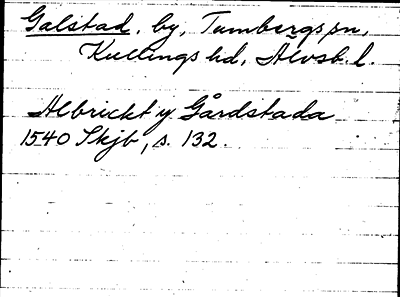 Galstad, by, Tumbergs sn,
Kullings hd, Älvsb. l.
Albrickt y Gårdstada
1540 Skjb, s. 132.